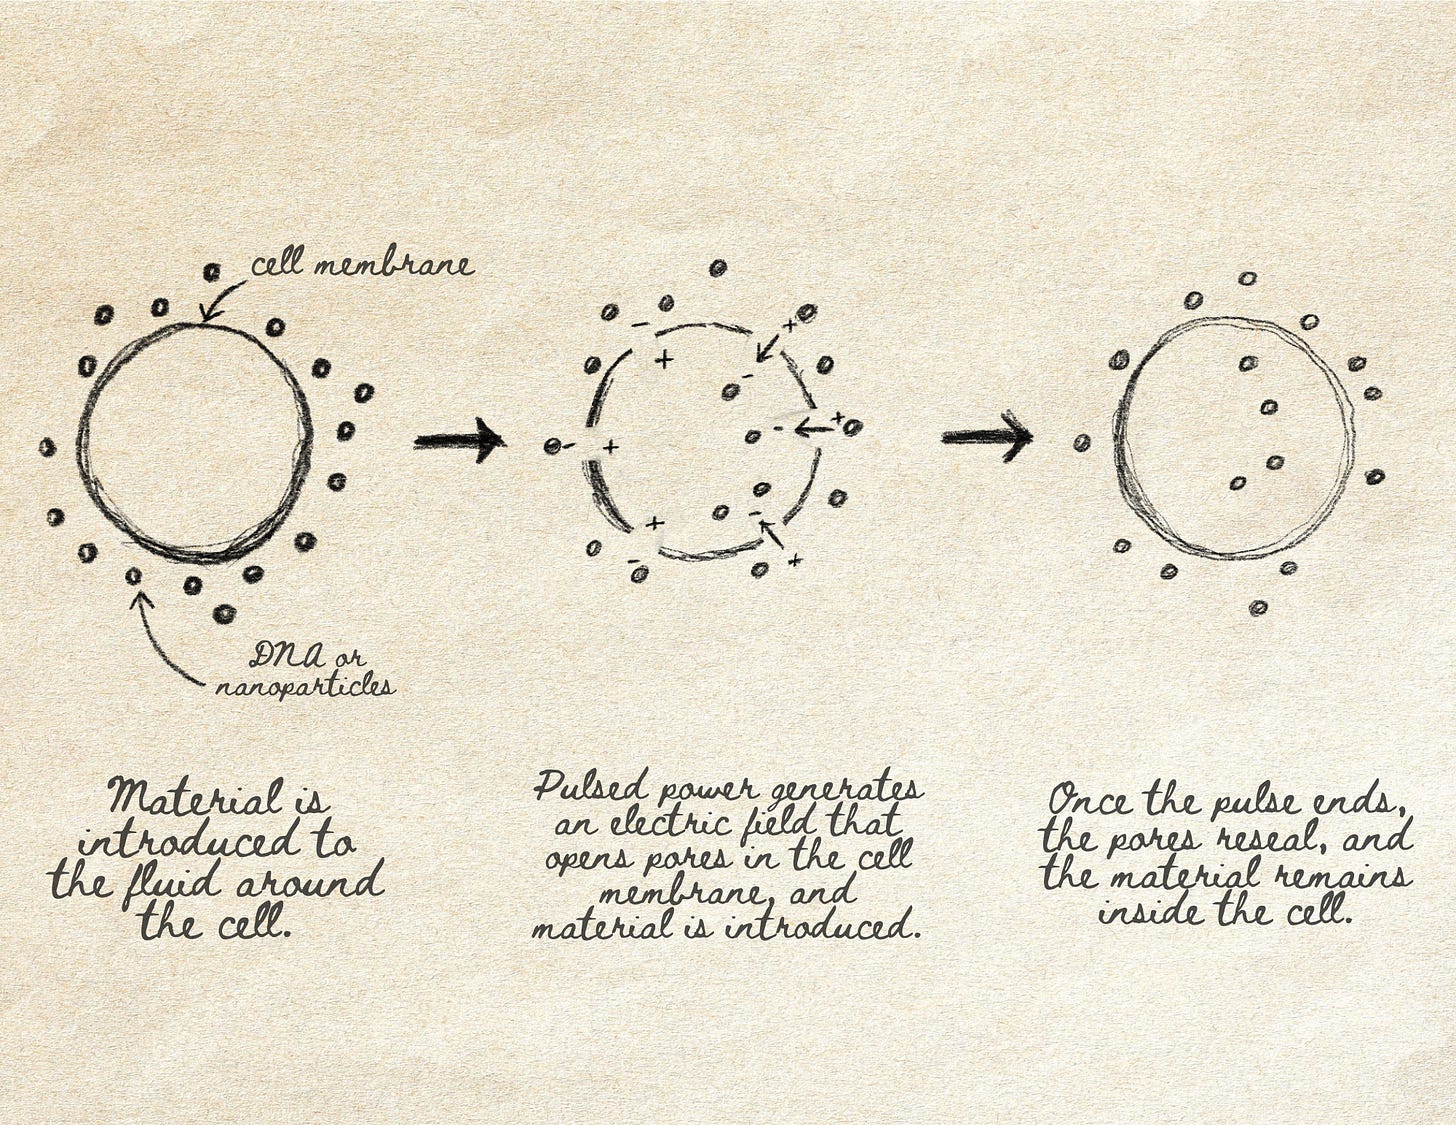 cell membrane
DNA or
nanoparticles
Material is
introduced to
the fluid around
the cell.
Pulsed power generates
an electric field that
opens pores in the cell
membrane, and
material is introduced.
Once the pulse ends,
the pores reseal, and
the material remains
inside the cell.